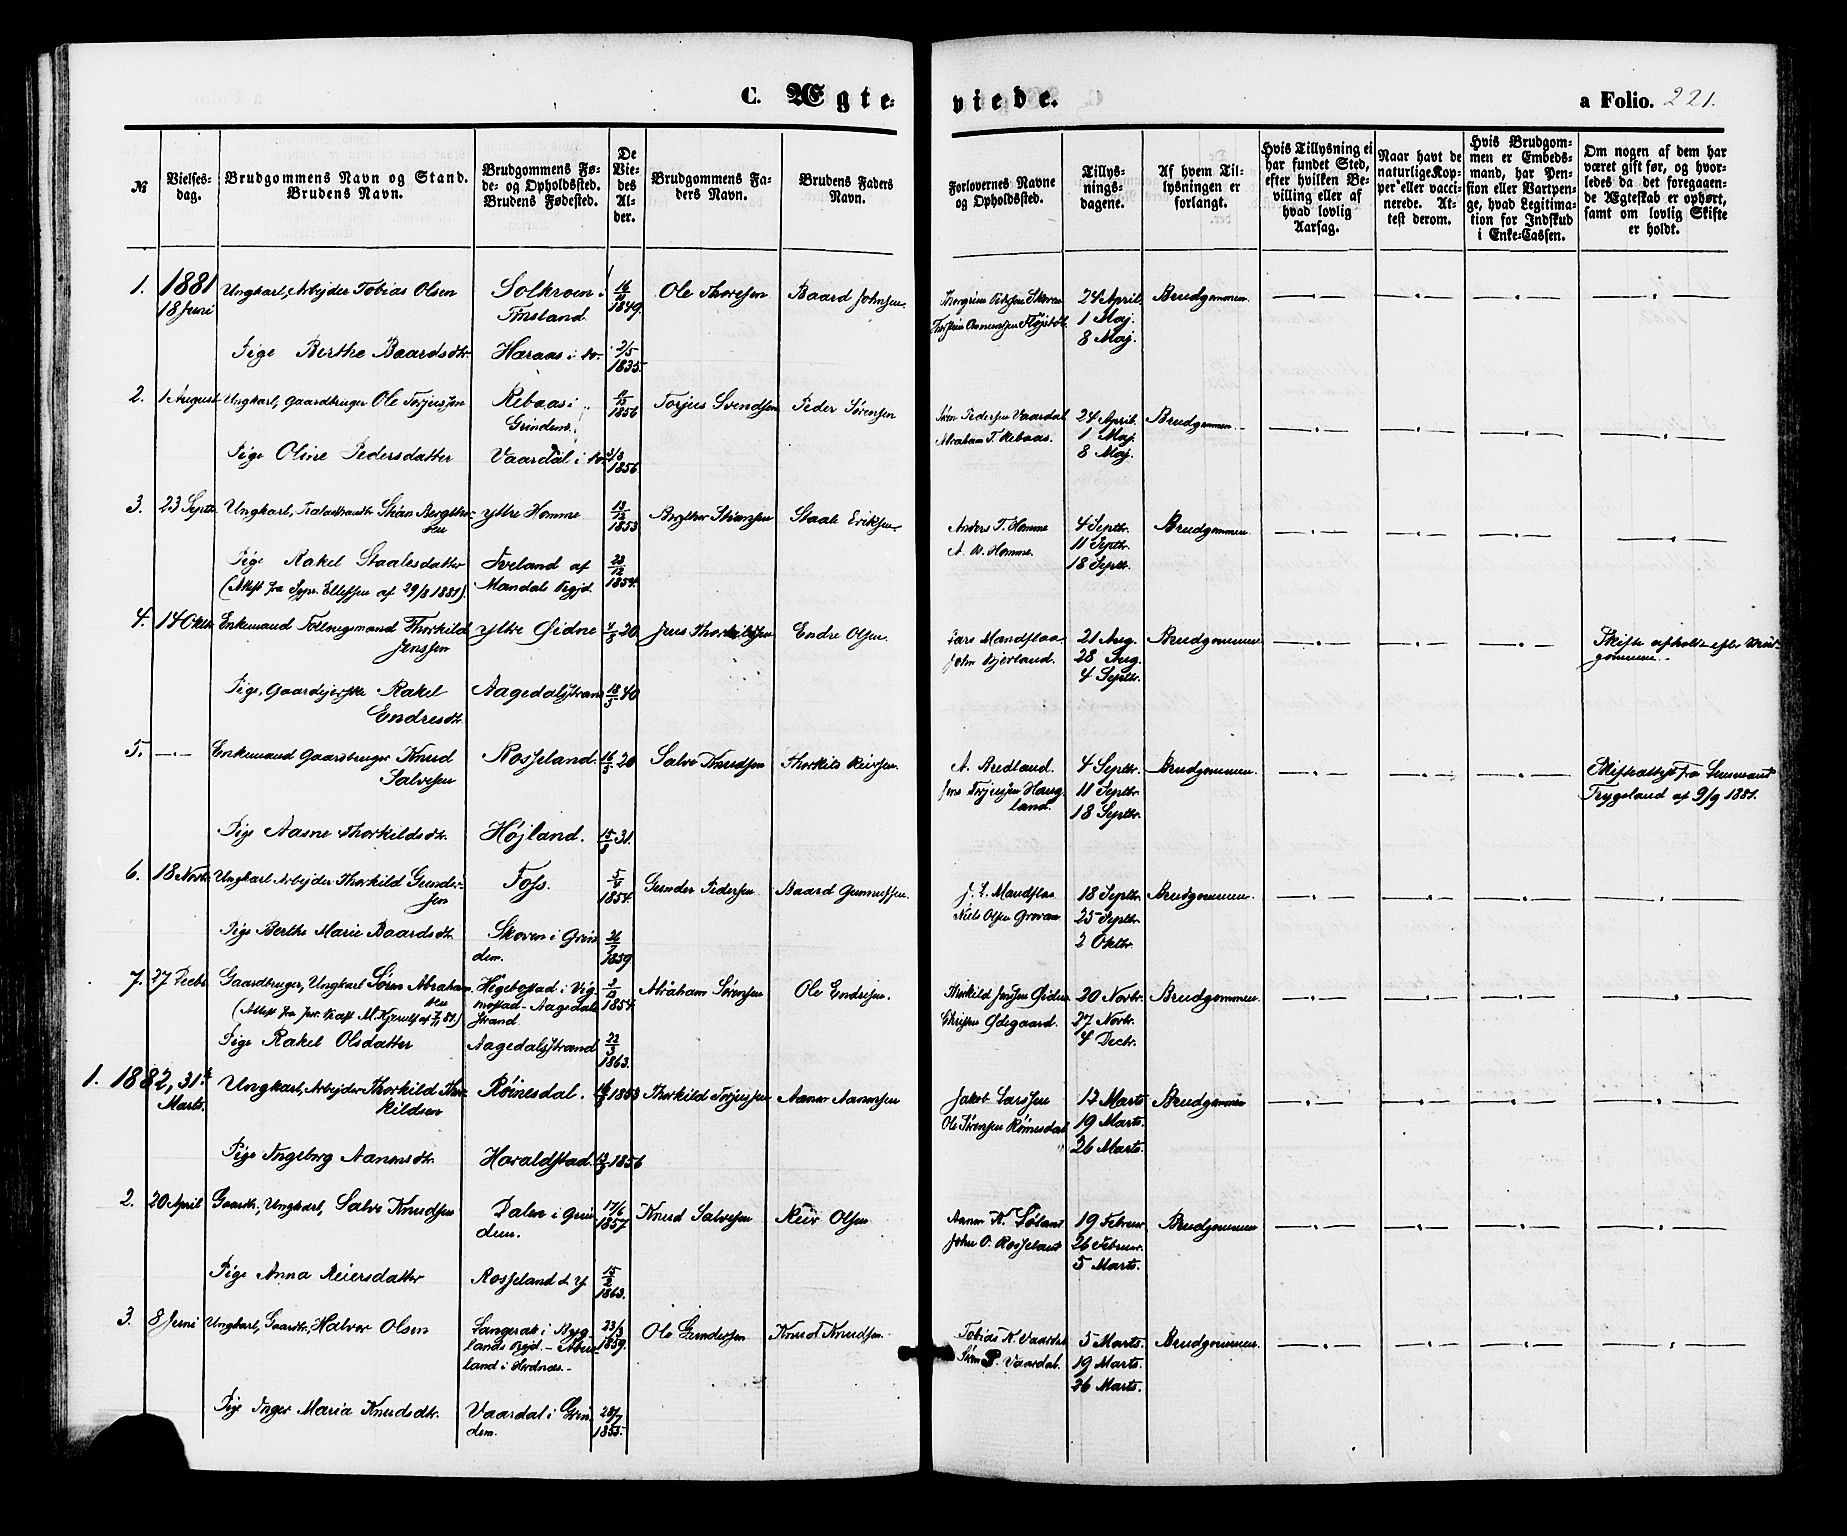 C. Ægte-
viede.
a Folio. 221.
№
Vielses-
dag.
Brudgommens Navn og Stand.
Brudens Navn.
Brudgommens Fø-
de- og Opholdssted.
Brudens Fødested.
De
Vie-
des
Al-
der.
Brudgommens Fa-
ders Navn.
Brudens Faders
Navn.
Forlovernes Navne
og Opholdssted.
Tillys-
nings-
dagene.
Af hvem Til-
lysningen er
forlangt.
Hvis Tillysning ei
har fundet Sted,
efter hvilken Be-
villing eller af
hvad lovlig
Aarsag.
Naar havt de
naturlige Kop-
per eller vacci-
nerede. At-
test derom.
Hvis Brudgom-
men er Embeds-
mand, har Pen-
sion eller Vartpen-
ge, hvad Legitima-
tion for Indskud
i Enke-Cassen.
Om nogen af dem har
været gift før, og hvor-
ledes da det foregaaen-
de Ægteskab er ophørt,
samt om lovlig Skifte
er holdt.
1. 1881
18 Juni
Ungkarl, Arbejder Tobias Olsen
Solkroen i
Finsland
1849.
Ole Thoresen
Baard Johnsen
24 April.
1 Maj.
8 Maj.
Brudgommen
Pige Berthe Baardsdtr.
Haraas i do.
2/5
1835.
2. 1 August
Ungkarl, Gaardbruger Ole Torjussen
Rebaas i
Grindem.
1856
Torjus Svendsen
Peder Sørensen
Søren Pedersen Vaardal
Abraham T. Rebaas.
24 April.
1 Maj.
8 Maj.
Brudgommen
Pige Oline Pedersdatter
Vaardal i do.
1856
3. 23 Septr.
Ungkarl, Stian Bergthor-
sen
Ytre Homme
13/12
1853
Staale Eriksen
Anders T. Homme
A. B. Homme.
4 Septbr.
11 Septbr.
18 Septbr.
Brudgommen
Pige Rakel Staalesdatter
(Attest fra Sgpr. Ellefsen af 29/8 1881).
Tveland af
Mandals Prgjd.
23/12
1854.
4. 14 Oktr.
Enkemand Thorkild
Jenssen
Ytre Øidne
20
Jens Thorkildsen
Endre Olsen.
Lars Mandflaa
John Bjerland.
21 Aug.
28 Aug.
4 Septbr.
Brudgommen
Skifte afholdt efter Brud-
gommen
Pige, Gaardejerske Rakel
Endresdtr.
Aagedalsstrand
18/3 40
5.
Enkemand Gaardbruger Knud
Salvesen
Rosseland.
16/3 20
Salve Knudsen
Thorkild Reiersen.
A. Bredland.
Jens Torjussen Haug-
land.
4 Septbr.
11 Septbr.
18 Septbr.
Brudgommen
Skifteattest fra Lensmand
Trygsland af 9/9 1881.
Pige Aasne Thorkildsdtr.
Højland.
15/8 31.
6. 18 Novbr.
Ungkarl Arbejder Thorkild Gunder-
sen
Foss.
1854.
Gunder Pedersen
Baard Gunnufsen.
J. L. Mandflaa
Niels Olsen Grovan
18 Septbr.
25 Septbr.
2 Oktbr.
Brudgommen.
Pige Berthe Marie Baardsdtr.
Skoven i Grin-
dem.
26/7
1859
7. 27 Decbr.
Gaardbruger, Ungkarl Søren Abraham-
sen
Hegebostad i Vig-
mostad - Aagedals-
strand.
1854.
Abraham Sørensen
Ole Endresen.
Thorkild Jensen Øidne
Christen Ødegaard.
20 Novbr.
27 Novbr.
4 Decbr.
Brudgommen.
Pige Rakel Olsdatter
Aagedalsstrand
22/3
1863.
1. 1882, 31te
Marts.
Ungkarl, Arbejder Thorkild Thor-
kildsen
Røinesdal.
1853
Thorkild Torjussen
Aanen Aanensen
Jakob Larssen
Ole Sørensen Rømesdal
12 Marts
19 Marts.
26 Marts.
Brudgommen
Pige Ingeborg Aanensdtr.
Haraldstad.
1856
2. 20 April
Gaardbr., Ungkarl, Salve Knudsen
Dalen i Grin-
dem.
17/6
1857.
Knud Salvesen
Reier Olsen
Aanen K. Loland
John O. Rosseland
19 Februar
26 Februar.
5 Marts.
Brudgommen
Pige Anna Reiersdatter
Rosseland d. y.
15/2
1863.
3. 8 Juni
Ungkarl, Gaardbr., Halvor Olsen
Langerak i Byg-
lands Prgjd.
23/3
1859.
Ole Gundersen
Knud Knudsen.
Tobias K. Vaardal
Søren P. Vaardal.
5 Marts.
19 Marts.
26 Marts.
Brudgommen.
Pige Inger Maria Knudsdtr.
Vaardal i Grin-
dem.
28/7
1855.